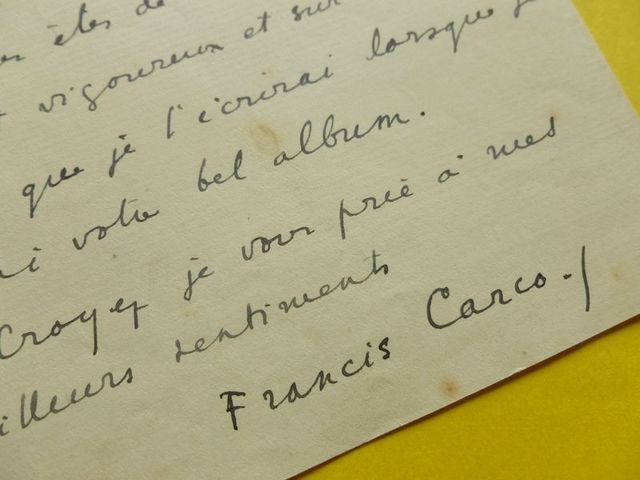 êtes de
vigoureux et sur
que je l'écrirai lorsque
votre bel album.
Croyez je vous prie à mes
illeurs sentiments
Francis Carco